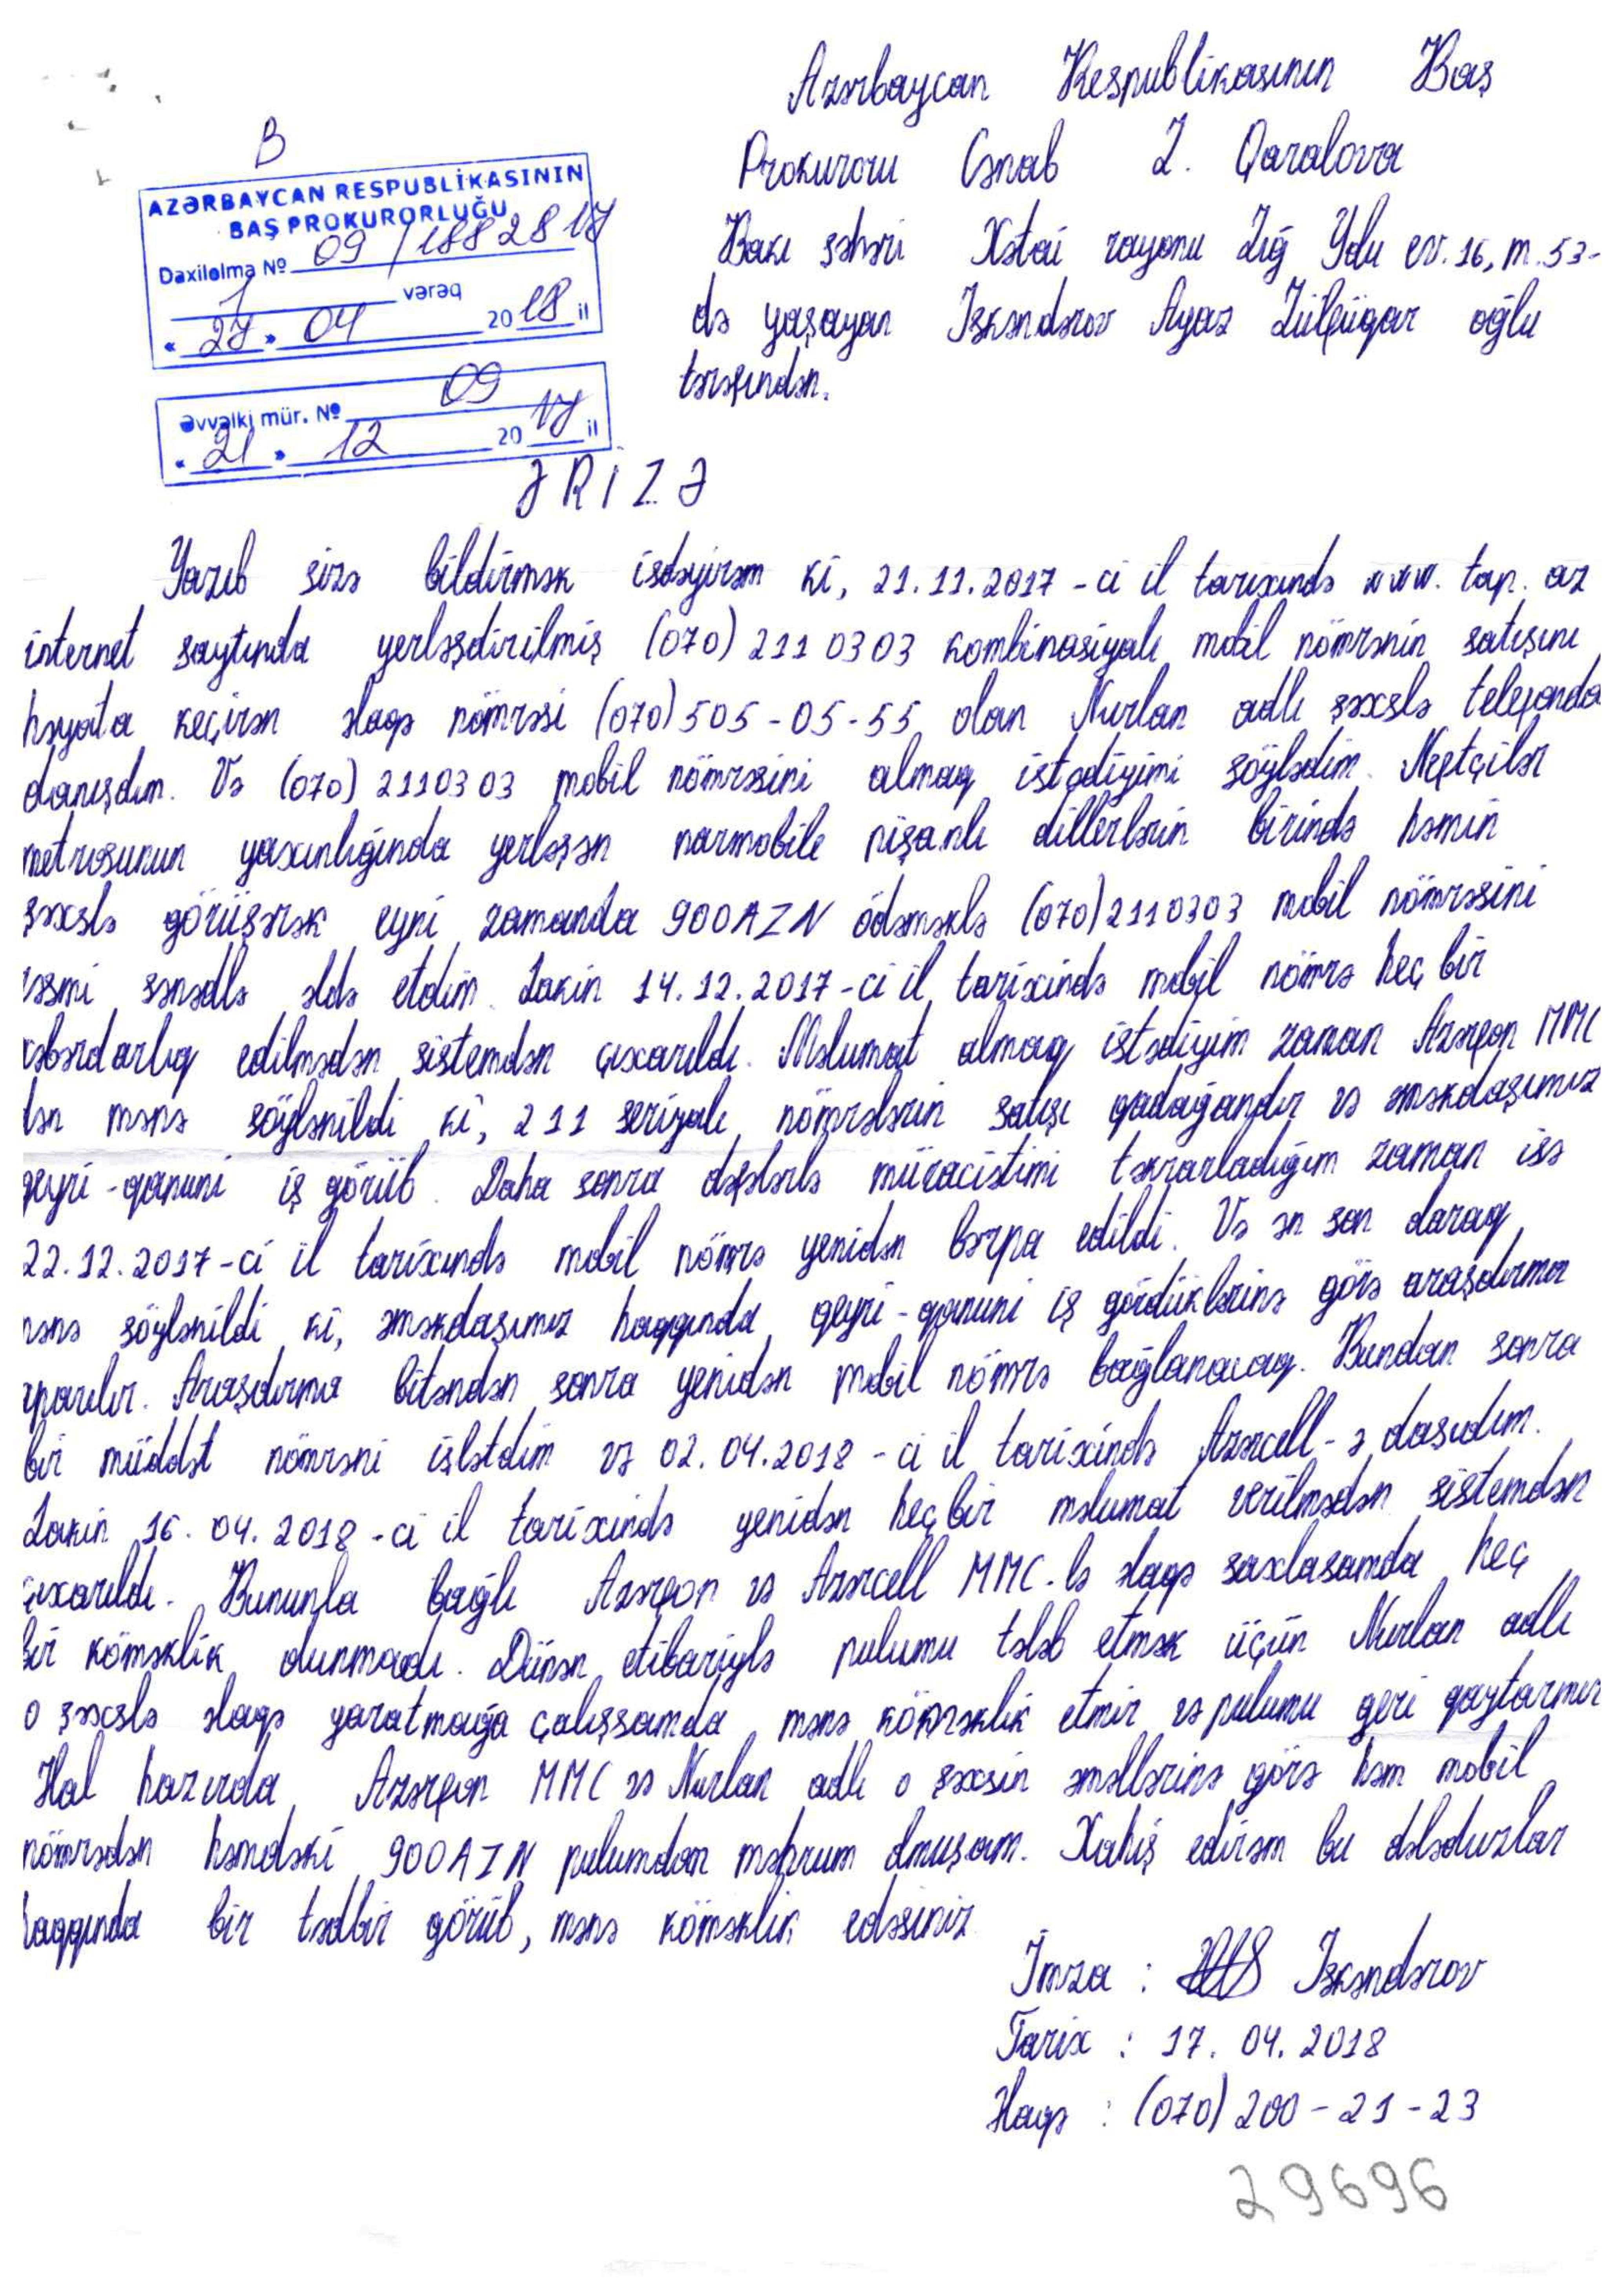 Azərbaycan Respublikasının Baş
Prokuroru Cənab Z. Qaralova
Bakı şəhəri Xətai rayonu Zığ Yolu ev. 16, m. 53-
də yaşayan İskəndərov Ayaz Zülfüqar oğlu
tərəfindən.
B
AZƏRBAYCAN RESPUBLİKASININ
BAŞ PROKURORLUĞU
Daxilolma № 09/1882817
1 vərəq
« 27 » 04 2018 il
Əvvəlki mür. № 09
« 21 » 12 2017 il
ƏRİZƏ
Yazıb sizə bildirmək isdəyirəm ki, 21.11.2017-ci il tarixində www.tap.az
internet saytında yerləşdirilmiş (070) 211 03 03 kombinasiyalı mobil nömrənin satışını
həyata keçirən əlaqə nömrəsi (070) 505-05-55 olan Nurlan adlı şəxslə telefonda
danışdım. Və (070) 2110303 mobil nömrəsini almaq istədiyimi söylədim. Neftçilər
metrosunun yaxınlığında yerləşən narmobile nişanlı dillerlərin birində həmin
şəxslə görüşərək eyni zamanda 900AZN ödəməklə (070) 2110303 mobil nömrəsini
rəsmi sənədlə əldə etdim. Lakin 14.12.2017-ci il tarixində mobil nömrə heç bir
xəbərdarlıq edilmədən sistemdən çıxarıldı. Məlumat almaq istədiyim zaman Azərfon MMC
dən mənə söylənildi ki, 211 seriyalı nömrələrin satışı qadağandır və əməkdaşımız
qeyri-qanuni iş görüb. Daha sonra dəfələrlə müraciətimi təkrarladığım zaman isə
22.12.2017-ci il tarixində mobil nömrə yenidən bərpa edildi. Və ən son olaraq
mənə söylənildi ki, əməkdaşımız haqqında qeyri-qanuni iş gördüklərinə görə araşdırma
aparılır. Araşdırma bitəndən sonra yenidən mobil nömrə bağlanacaq. Bundan sonra
bir müddət nömrəni işlətdim və 02.04.2018-ci il tarixində Azərcell-ə daşıdım.
Lakin 16.04.2018-ci il tarixində yenidən heç bir məlumat verilmədən sistemdən
çıxarıldı. Bununla bağlı Azərfon və Azərcell MMC-lə əlaqə saxlasamda heç
bir köməklik olunmadı. Dünən etibariylə pulumu tələb etmək üçün Nurlan adlı
o şəxslə əlaqə yaratmağa çalışsamda mənə köməklik etmir və pulumu geri qaytarmır
Hal hazırda Azərfon MMC və Nurlan adlı o şəxsin əməllərinə görə həm mobil
nömrədən həmdəki 900AZN pulumdan məhrum olmuşam. Xahiş edirəm bu dələduzlar
haqqında bir tədbir görüb, mənə köməklik edəsiniz
İmza : İskəndərov
Tarix : 17.04.2018
Əlaqə : (070) 200-21-23
29696